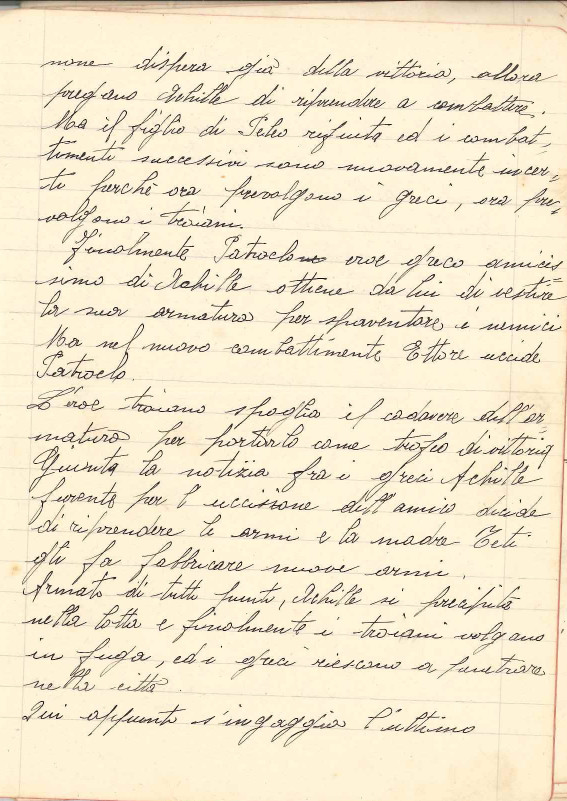 none dispera già della vittoria, allora
pregano Achille di riprendere a combattere.
Ma il figlio di Peleo rifiuta ed i combat=
timenti successivi sono nuovamente incer=
ti perchè ora prevolgono i greci, ora pre=
volgono i troiani.
Finalmente Patroclo eroe greco amicis=
simo di Achille ottiene da lui di vestire
la sua armatura per spaventare i nemici
Ma nel nuovo combattimento Ettore uccide
Patroclo.
L'eroe troiano spoglia il cadavere dell'ar=
matura per portarlo come trofeo di vittoria
Giunta la notizia fra i greci Achille
furente per l'uccisione dell'amico decide
di riprendere le armi e la madre Teti
gli fa fabbricare nuove armi.
Armato di tutti punti, Achille si precipita
nella lotta e finalmente i troiani volgano
in fuga, ed i greci riescono a penetrare
nella città.
Qui appunto s'ingaggia l'ultimo